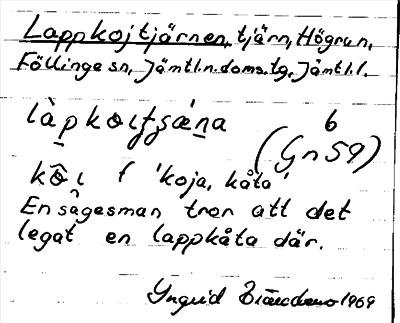 Lappkojtjärnen, tjärn, Högrun,
Föllinge sn, Jämtl.n.doms.tg, Jämtl.l.
6
(Gn 59)
f 'koja, kåta'
En sagesman tror att det
legat en lappkåta där.
Yngvid 1969